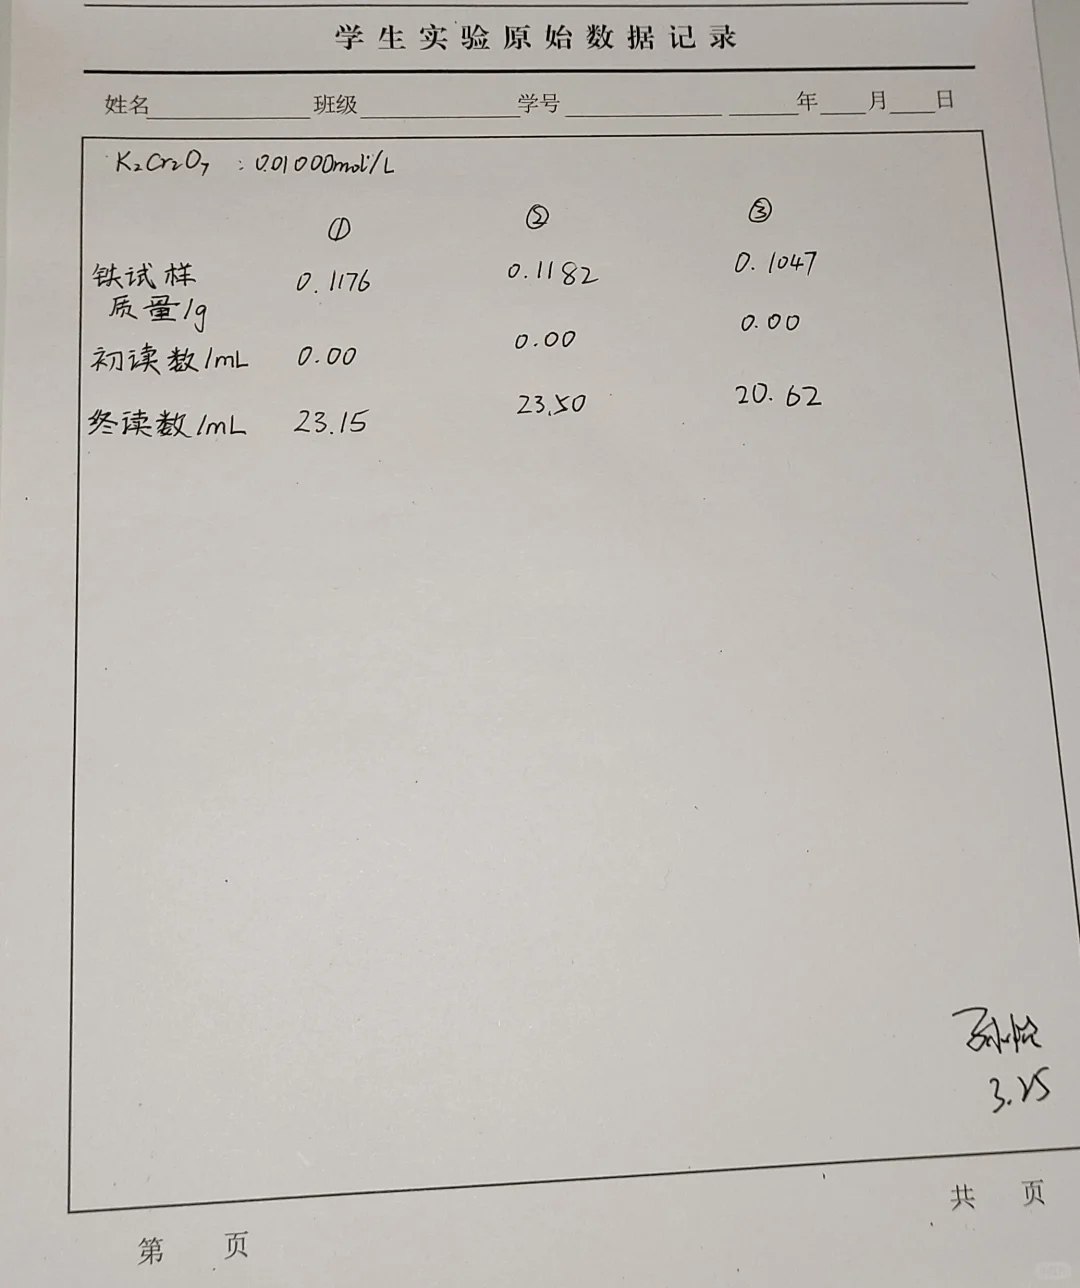 学生实验原始数据记录
姓名 班级 学号 年 月 日
K₂Cr₂O₇ : 0.01000mol/L
① ② ③
铁试样 0.1176 0.1182 0.1047
质量/g
初读数/mL 0.00 0.00 0.00
终读数/mL 23.15 23.50 20.62
3.25
共 页
第 页